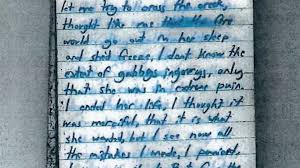 let me try to cross the creek,
thought like me that the fire
would go out in her sleep
and she'd freeze, I don't know the
extent of gabbys ingurys, only
that she was in extreme pain.
I ended her life, I thought it
was merciful, that it is what
she wanted, but I see now all
the mistakes I made, I panicked,